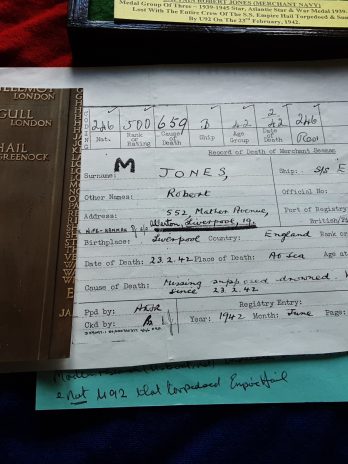 ROBERT JONES (MERCHANT NAVY)
Medal Group Of Three - 1939-1945 Star, Atlantic Star & War Medal 1939
Lost With The Entire Crew Of The S.S. Empire Hail Torpedoed & Sun
By U92 On The 23rd February, 1942.
LONDON
GULL
LONDON
HAIL
GREENOCK
246 500 659 42 2 42 246
Nat. Rank or Rating Cause of Death Ship Age Group Date of Death
Record of Death of Merchant Seaman
M
Surname: JONES, Ship: S/S E
Other Names: Robert Official No:
Address: 552, Mather Avenue, Port of Registry
Liverpool, 19. British/
Birthplace: Liverpool Country: England Rank or
Date of Death: 23.2.42 Place of Death: At sea Age at
Cause of Death: Missing supposed drowned.
since 23.2.42
Ppd by: Registry Entry:
Ckd by: Year: 1942 Month: June Page:
Not U92 that torpedoed Empire Hail